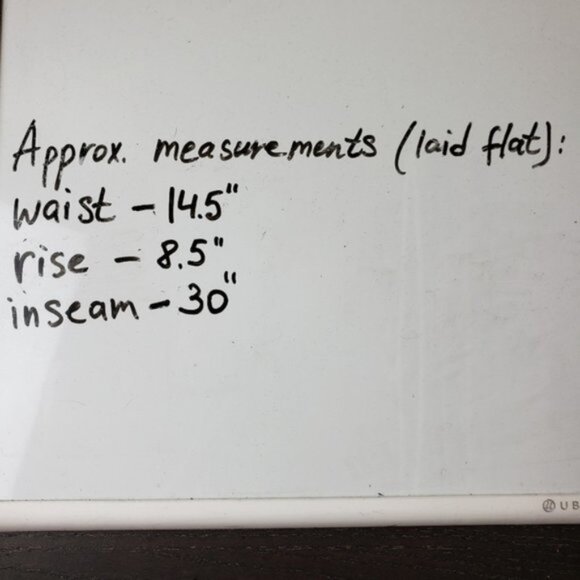 Approx. measurements (laid flat):
waist – 14.5"
rise – 8.5"
inseam – 30"
U B